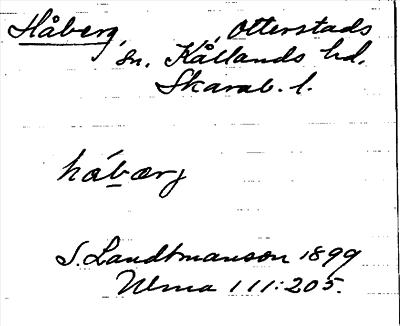 Håberg, Otterstads
sn. Kållands hd.
Skarab. l.
hábærj
S. Landtmanson 1899
Ulma 111:205.